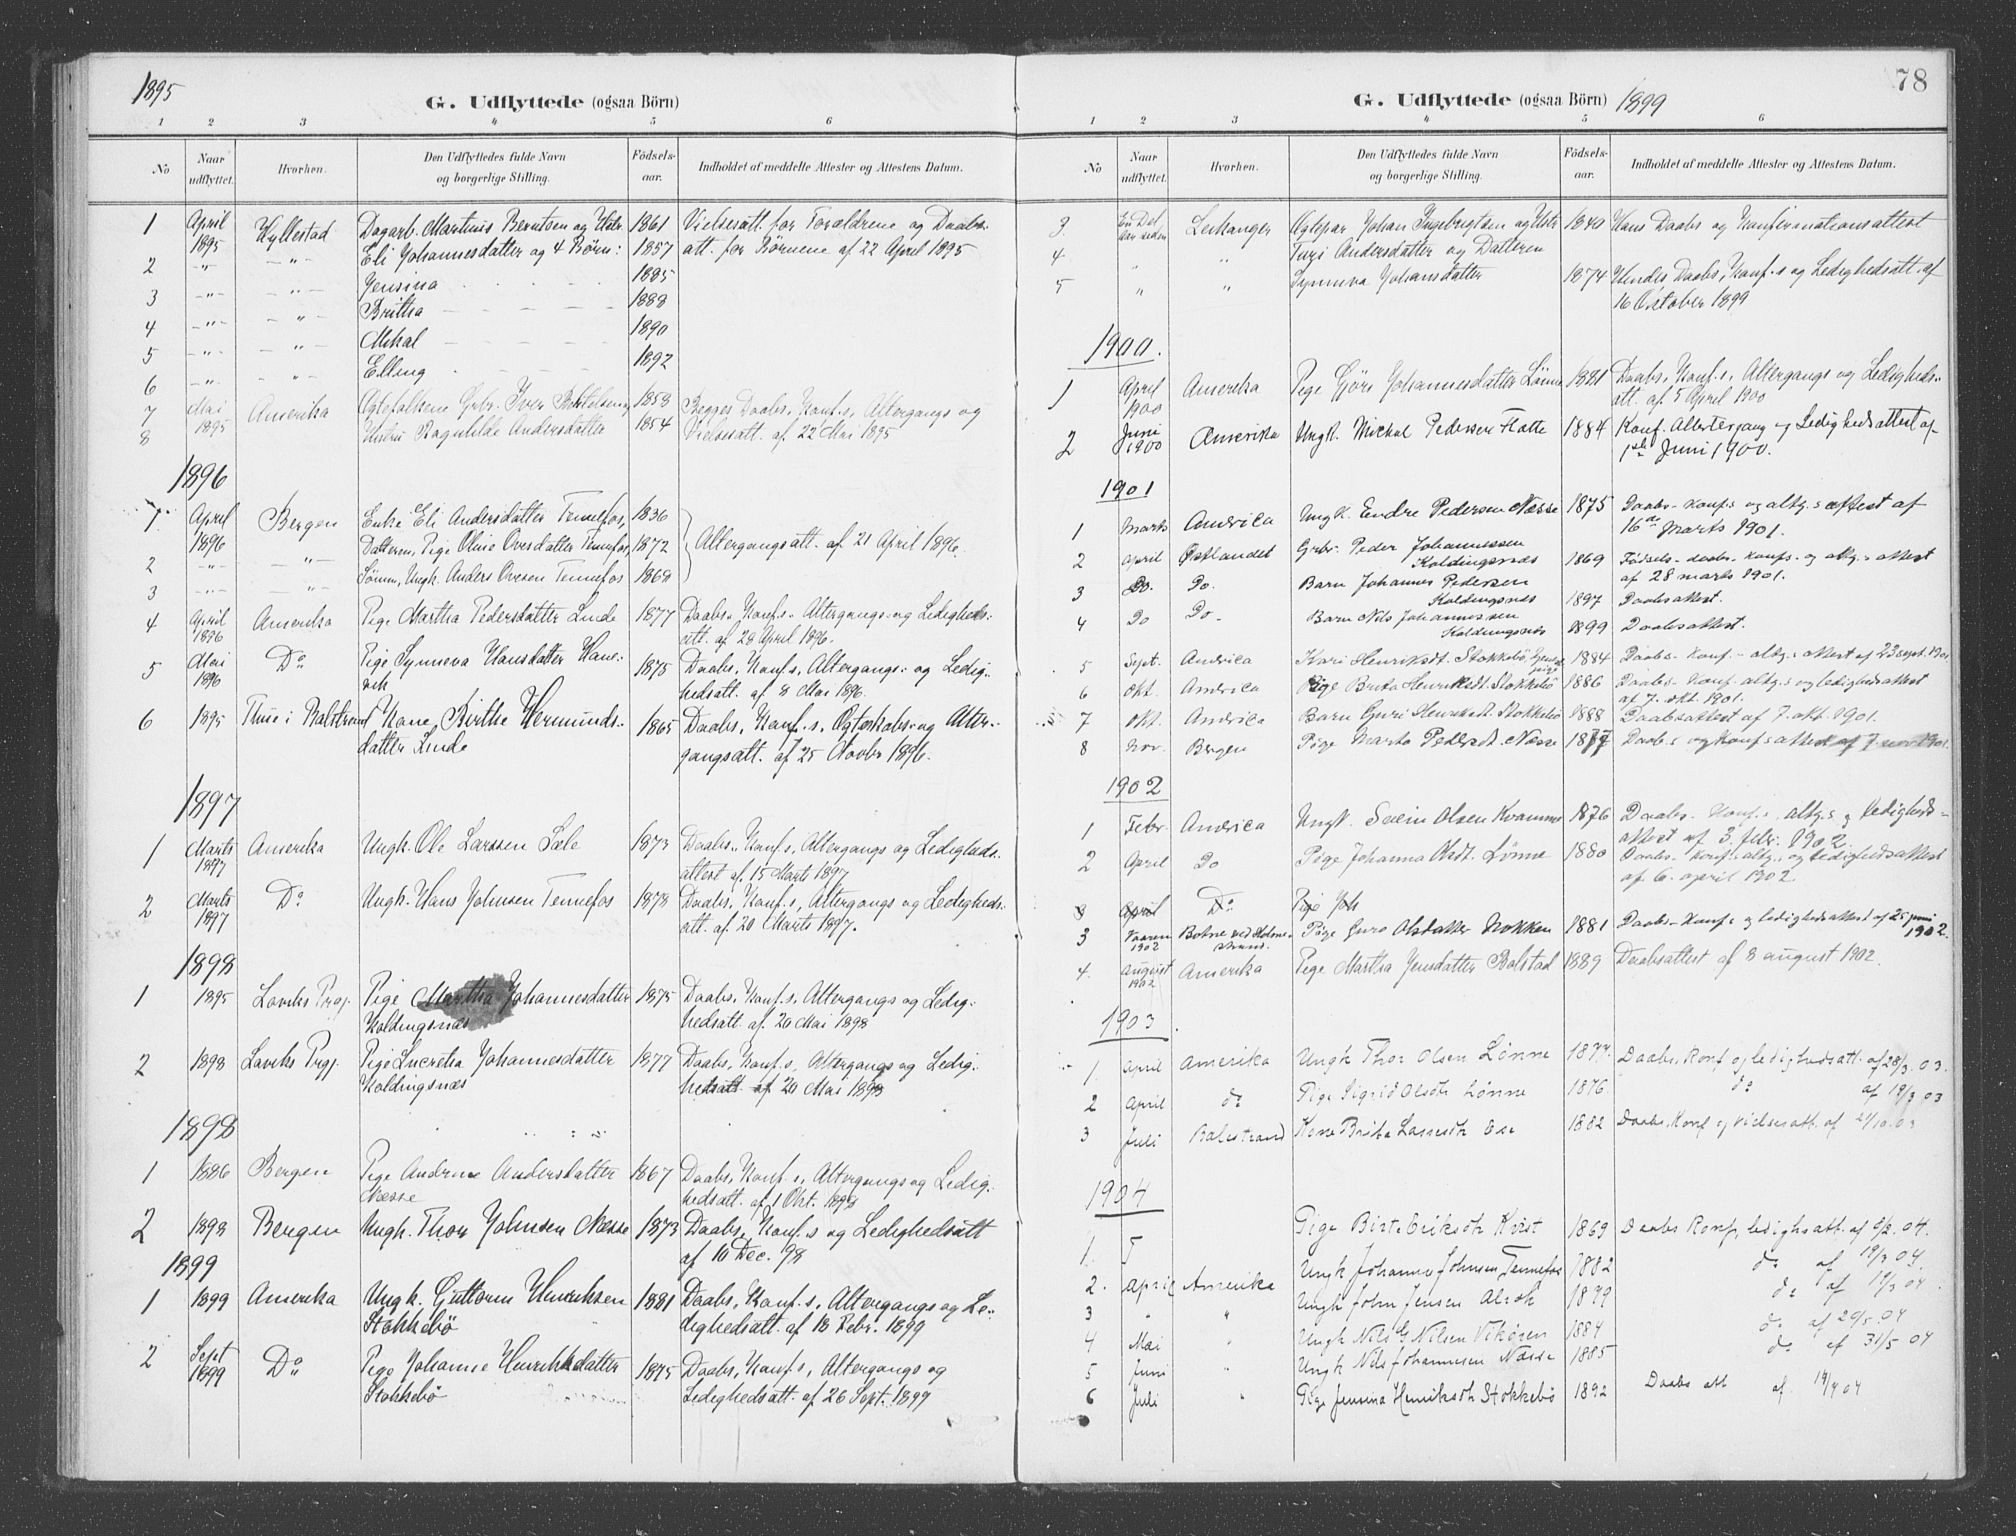 1895
G. Udflyttede (ogsaa Börn)
1 2 3 4 5 6
No Naar udflyttet. Hvorhen. Den Udflyttedes fulde Navn og borgerlige Stilling. Födsels-aar. Indholdet af meddelte Attester og Attestens Datum.
1 April 1895 Hyllestad Dagarb. Martinus Berntsen og Hstr. 1861 Vielsesatt. for Forældrene og Daabs-
2 -"- -"- Eli Johannesdatter og 4 Børn: 1857 att. for Børnene af 22 April 1895
3 -"- -"- Jensina 1885
4 -"- -"- Britha 1888
5 -"- -"- Mikal 1890
6 -"- -"- Elling 1892
7 Mai 1895 Amerika Ægtefolkene Grbr. Iver 1858 Begges Daabs, Konf.s, Altergangs og
8 Hustru Bagnhilde Andersdatter 1854 Vielsesatt. af 22 Mai 1895
1896
1 April 1896 Bergen Enke Eli Andersdatter Tennefos, 1836
2 -"- -"- Datteren, Pige Oline Ovesdatter Tennefos, 1872 Altergangsatt. af 21 April 1896.
3 -"- -"- Sønnen, Ungk. Anders Ovesen Tennefos 1868
4 April 1896 Amerika Pige Martha Pedersdatter Linde 1877 Daabs, Konf.s, Altergangs- og Ledigheds-
att. af 20 April 1896.
5 Mai 1896 Do Pige Synneva Hansdatter Hane- 1875 Daabs, Konf.s, Altergangs- og Ledig-
vik hedsatt. af 8 Mai 1896.
6 1895 Thue i Balstrand Kone Birthe Hermunds- 1865 Daabs, Konf.s, Ægteskabs- og Alter-
datter Linde gangsatt. af 25 Novbr 1896.
1897
1 Marts 1897 Amerika Ungk. Ole Larssen Sæle 1873 Daabs, Konf.s, Altergangs og Ledigheds.
attest af 15 Marts 1897
2 Marts 1897 Do Ungk. Hans Johnsen Tennefos 1878 Daabs, Konf.s, Altergangs og Ledigheds-
att. af 20 Marts 1897.
1898
1 1895 Laviks Prgj. Pige Martha Johannesdatter 1875 Daabs, Konf.s, Altergangs og Ledig-
Koldingsnæs hedsatt. af 20 Mai 1898
2 1898 Laviks Prgj. Pige Lucretia Johannesdatter 1877 Daabs, Konf.s, Altergangs og Ledig-
Koldingsnæs hedsatt. af 20 Mai 1898
1898
1 1886 Bergen Pige Andrine Andersdatter 1867 Daabs, Konf.s, Altergangs og Ledig-
Næsse hedsatt. af 1 Okt. 1898
2 1898 Bergen Ungk. Thor Johnsen Næsse 1873 Daabs, Konf.s og Ledighedsatt
af 10 Dec. 98
1899
1 1899 Amerika Ungk. Guttorm Henriksen 1881 Daabs, Konf.s, Altergangs og Le-
Stokkebö dighedsatt. af 18 Febr. 1899
2 Sept 1899 Do Pige Johanne Henriksdatter 1875 Daabs, Konf.s, Altergangs og
Stokkebö Ledighedsatt. af 26 Sept. 1899
78
G. Udflyttede (ogsaa Börn) 1899
1 2 3 4 5 6
No Naar udflyttet. Hvorhen. Den Udflyttedes fulde Navn og borgerlige Stilling. Födsels-aar. Indholdet af meddelte Attester og Attestens Datum.
3 En Del Aar siden Leikanger Ægtepar Johan Ingebrigtsen og Hstr 1840 Hans Daabs og Konfirmationsattest
4 " " Turi Andersdatter og Datteren
5 " " Synneva Johansdatter 1874 Hendes Daabs, Konf.s og Ledighedsatt. af
16 October 1899
1900.
1 April 1900 Amerika Pige Gjöri Johannesdatter Lönne 1881 Daabs, Konf.s, Altergangs og Ledigheds-
att. af 5 April 1900
2 Juni 1900 Amerika Ungk. Mickal Pedersen Flatte 1884 Konf. Altergang og Ledighedsattest af
1ste Juni 1900.
1901
1 Marts Amerika Ungk. Endre Pedersen Næsse 1875 Daabs- Konf.s og altg.s attest af
16de Marts 1901.
2 April Østlandet Grbr. Peder Johannessen
Koldingsnæs 1869 Fødsels- daabs- konf.s- og altg.s attest
af 28 marts 1901.
3 Do. Do. Barn Johannes Pedersen
Koldingsnæs 1897 Daabsattest.
4 Do Do. Barn Nils Johannessen
Koldingsnæs 1899 Daabsattest.
5 Sept. Amerika Kari Henriksdt. Stokkebö 1884 Daabs- Konf.- altg.s attest af 23 sept. 1901
6 Okt. Amerika Pige Brita Henriksdt. Stokkebö 1886 Daabs- Konf. altg.s og ledighedsattest
af 7. okt. 1901.
7 Okt. Amerika Barn Guri Henriksdt. Stokkebö 1888 Daabsattest af 7. okt. 1901.
8 Nov. Bergen Pige Marta Pedersdt. Næsse 1877 Daab.s og Konf.s attest af 7 nov 1901.
1902
1 Febr. Amerika Ungk. Svein Olsen Kvamme 1876 Daabs- Konf.s, altg.s og ledigheds-
attest af 3. febr. 1902.
2 April Do Pige Johanna Olsdt. Lönne 1880 Daabs- Konf.s altg.s og ledighedsattest
af 6. april 1902.
3 April Do Pige Joh
3 Vaaren 1902 Botne ved Holme-strand. Pige Guro Olsdatter Nokken 1881 Daabs- Konf.s og ledighedsattest af 25 juni 1902.
4. August 1902 Amerika Pige Martha Jensdatter Bolstad 1889 Daabsattest af 8 august 1902.
1903.
1 April Amerika Ungk Thor Olsen Lönne 1877 Daabs, Konf og ledighedsatt. af 28/3 03.
2 April do Pige Sigrid Olsdtr Lönne 1876 do af 19/3 03
3 Juli Balestrand Kone Brita Lassesdtr Ese 1882 Daabs, Konf og vielsesatt. af 21/10 03
1904
1. Pige Birte Eriksdtr Kvist 1869 Daabs Konf, ledighsatt. af 9/2. 04.
2. April Amerika Ungk Johannes Johnsen Tennefos 1882 do af 19/3 04
3 " " Ungk John Jensen 1879 do af 19/3 04
4 Mai " Ungk Nils G Nilsen Vikören 1884 do af 29/5 04
5 Juni " Ungk Nils Johannesen Næsse 1885 do af 31/5 04
6 Juli " Pige Jensina Henriksdtr Stokkebö 1892 Daabs att af 14/7 04